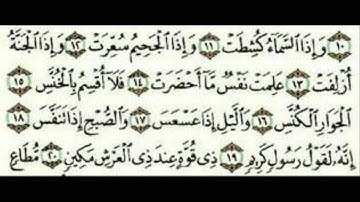 ۝١٠ وَإِذَا السَّمَاءُ كُشِطَتْ ۝١١ وَإِذَا الْجَحِيمُ سُعِّرَتْ ۝١٢ وَإِذَا الْجَنَّةُ
أُزْلِفَتْ ۝١٣ عَلِمَتْ نَفْسٌ مَّا أَحْضَرَتْ ۝١٤ فَلَا أُقْسِمُ بِالْخُنَّسِ ۝١٥
الْجَوَارِ الْكُنَّسِ ۝١٦ وَاللَّيْلِ إِذَا عَسْعَسَ ۝١٧ وَالصُّبْحِ إِذَا تَنَفَّسَ ۝١٨
إِنَّهُ لَقَوْلُ رَسُولٍ كَرِيمٍ ۝١٩ ذِي قُوَّةٍ عِندَ ذِي الْعَرْشِ مَكِينٍ ۝٢٠ مُّطَاعٍ